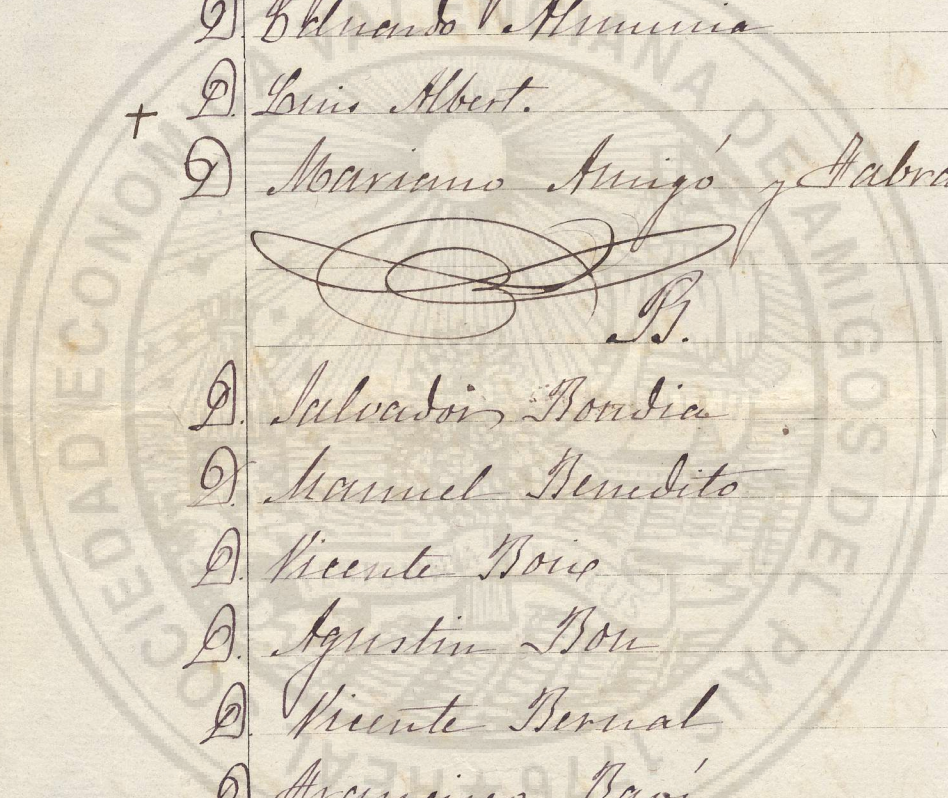 D. Eduardo Almunia
+ D. Luis Albert.
D. Mariano Amigó y Fabra
B.
D. Salvador Bondia
D. Manuel Benedito
D. Vicente Boix
D. Agustin Bou
D. Vicente Bernal
D. Francisco
SOCIEDAD ECONOMICA VALENCIANA DE AMIGOS DEL PAIS